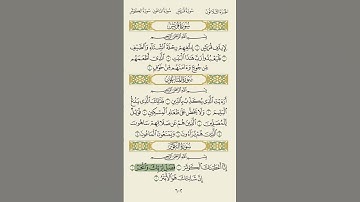 سورة قريش سورة الماعون سورة الكوثر الجزء الثلاثون
سُورَةُ قُرَيْشٍ
بِسْمِ اللَّهِ الرَّحْمَٰنِ الرَّحِيمِ
لِإِيلَافِ قُرَيْشٍ ١ إِۦلَافِهِمْ رِحْلَةَ الشِّتَاءِ وَالصَّيْفِ
٢ فَلْيَعْبُدُوا رَبَّ هَٰذَا الْبَيْتِ ٣ الَّذِي أَطْعَمَهُم
مِّن جُوعٍ وَءَامَنَهُم مِّنْ خَوْفٍ ٤
سُورَةُ الْمَاعُونِ
بِسْمِ اللَّهِ الرَّحْمَٰنِ الرَّحِيمِ
أَرَءَيْتَ الَّذِي يُكَذِّبُ بِالدِّينِ ١ فَذَٰلِكَ الَّذِي يَدُعُّ
الْيَتِيمَ ٢ وَلَا يَحُضُّ عَلَىٰ طَعَامِ الْمِسْكِينِ ٣ فَوَيْلٌ
لِّلْمُصَلِّينَ ٤ الَّذِينَ هُمْ عَن صَلَاتِهِمْ سَاهُونَ
٥ الَّذِينَ هُمْ يُرَاءُونَ ٦ وَيَمْنَعُونَ الْمَاعُونَ ٧
سُورَةُ الْكَوْثَرِ
بِسْمِ اللَّهِ الرَّحْمَٰنِ الرَّحِيمِ
إِنَّا أَعْطَيْنَاكَ الْكَوْثَرَ ١ فَصَلِّ لِرَبِّكَ وَانْحَرْ ٢
إِنَّ شَانِئَكَ هُوَ الْأَبْتَرُ ٣
٦٠٢